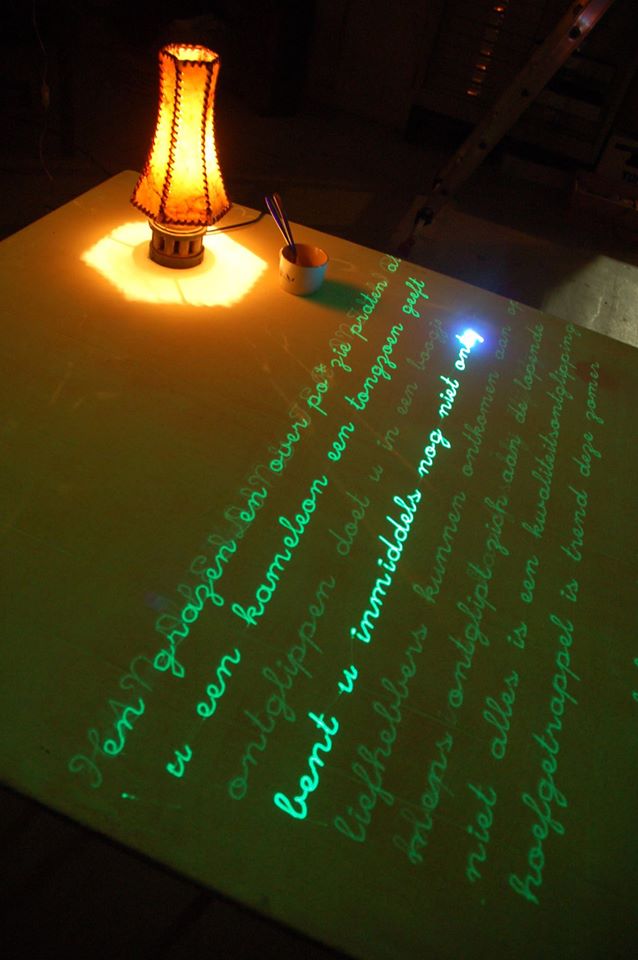 en grazen en over po*zie praten al
u een kameleon een tongzoen geeft
ontglippen doet u in een boogje
bent u inmiddels nog niet ontg
liefhebbers kunnen ontkomen aan
mens ontglipt zich aan de lopende
niet alles is een kwaliteitsontglipping
hoefgetrappel is trend deze zomer